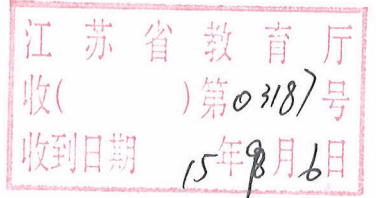 江苏省教育厅
收( )第03187号
收到日期 15年月6日